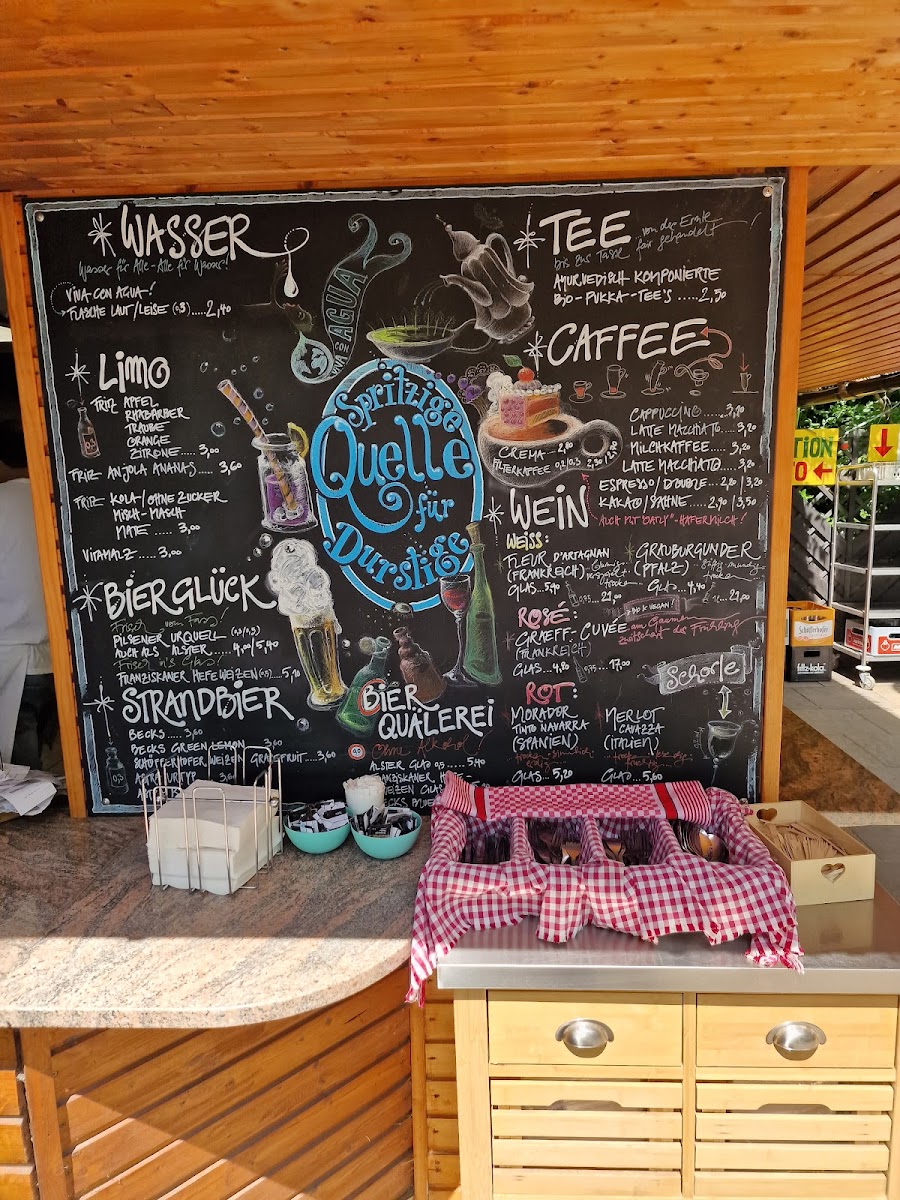 WASSER
Wasser für Alle - Alle für Wasser!
VIVA-CON AGUA-!
FLASCHE LAUT/LEISE (0,5).....2,40
VIVA CON AGUA
LIMO
FRITZ APFEL
RHABARBER
TRAUBE
ORANGE
ZITRONE.... 3,00
FRITZ ANJOLA ANANAS.... 3,60
FRITZ KOLA/OHNE ZUCKER
MISCH-MASCH
MATE .... 3,00
VITAMALZ ..... 3,00
BIERGLÜCK
Frisch vom Fass!
PILSENER URQUELL (0,3/0,5)
AUCH ALS ALSTER.....4,00/5,40
Frisch in's Glas!
FRANZISKANER HEFEWEIZEN (0,5)...5,40
STRANDBIER
BECKS ..... 3,60
BECKS GREEN LEMON 3,60
SCHÖFFERHOFER WEIZEN GRAPEFRUIT....3,60
3,60
Spritzige
Quelle
für
Durstige
BIER
QUÄLEREI
0,0
Ohne Alkohol!
ALSTER GLAS 0,5 .....5,40
FRANZISKANER, H
WEIZEN GLAS
BECKS
TEE
von der Ernte
bis zur Tasse fair gehandelt!
AYURVEDISCH KOMPONIERTE
BIO-PUKKA-TEE'S .....2,50
CAFFEE
CAPPUCCINO.....3,20
LATTE MACCHIATO....3,20
MILCHKAFFEE.... 3,20
LATTE MACCHIATO....3,20
ESPRESSO/DOUBLE...2,20 | 3,20
KAKAO/SAHNE.....2,90 | 3,50
AUCH MIT "OATLY" - HAFERMILCH!
CREMA.... 2,80
FILTERKAFFEE 0,2|0,3 2,30 | 2,90
WEIN
WEISS:
FLEUR D'ARTAGNAN
(FRANKREICH)
GLAS...5,40
0,75... 21,00
GRAUBURGUNDER
(PFALZ)
GLAS...4,40
21,00
ROSÉ
GRAEFF-CUVÉE
(FRANKREICH)
GLAS...4,80
0,75... 17,00
VEGAN!
am Gaumen
ROT:
MORADOR
TINTO NAVARRA
(SPANIEN)
GLAS...5,20
MERLOT
CAVAZZA
(ITALIEN)
GLAS...5,60
Schorle
TION
O
Schöfferhofer
fritz-kola